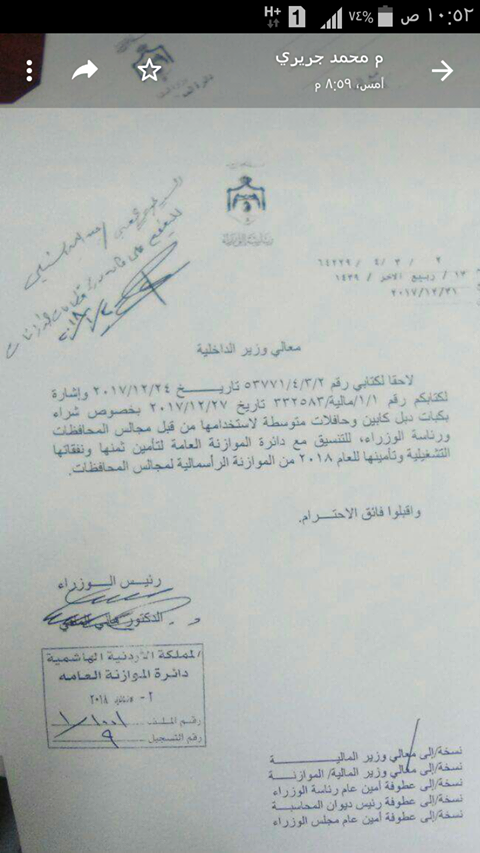 ١٠:٥٢ ص
٧٤%
1
H+
م محمد جريري
أمس، ٨:٥٩ م
رئاسة الوزراء
٢ / ٣ / ٤ / ٦٤٢٢٩
١٣ / ربيع الآخر / ١٤٣٩
٢٠١٧/١٢/٣١
معالي وزير الداخلية
لاحقا لكتابي رقم ٥٣٧٧١/٤/٣/٢ تاريخ ٢٠١٧/١٢/٢٤ وإشارة
لكتابكم رقم ١/١/مالية/٣٣٢٥٨٣ تاريخ ٢٠١٧/١٢/٢٧ بخصوص شراء
بكبات دبل كابين وحافلات متوسطة لاستخدامها من قبل مجالس المحافظات
ورئاسة الوزراء، للتنسيق مع دائرة الموازنة العامة لتأمين ثمنها ونفقاتها
التشغيلية وتأمينها للعام ٢٠١٨ من الموازنة الرأسمالية لمجالس المحافظات.
واقبلوا فائق الاحترام.
رئيس الوزراء
الدكتور هاني الملقي
المملكة الأردنية الهاشمية
دائرة الموازنة العامه
٢- ٢٠١٨
رقم الملف
رقم التسجيل
نسخة/إلى معالي وزير المالية
نسخة/إلى معالي وزير المالية/ الموازنة
نسخة/إلى عطوفة أمين عام رئاسة الوزراء
نسخة/إلى عطوفة رئيس ديوان المحاسبة
نسخة/إلى عطوفة أمين عام مجلس الوزراء